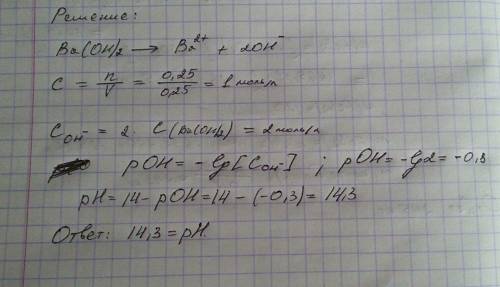 Решение:
Ba(OH)₂ → Ba²⁺ + 2OH⁻
C = n/V = 0,25/0,25 = 1 моль/л
C_OH⁻ = 2 · C(Ba(OH)₂) = 2 моль/л
pOH = -lg[C_OH⁻] ; pOH = -lg2 = -0,3
pH = 14 - pOH = 14 - (-0,3) = 14,3
Ответ: 14,3 = pH.